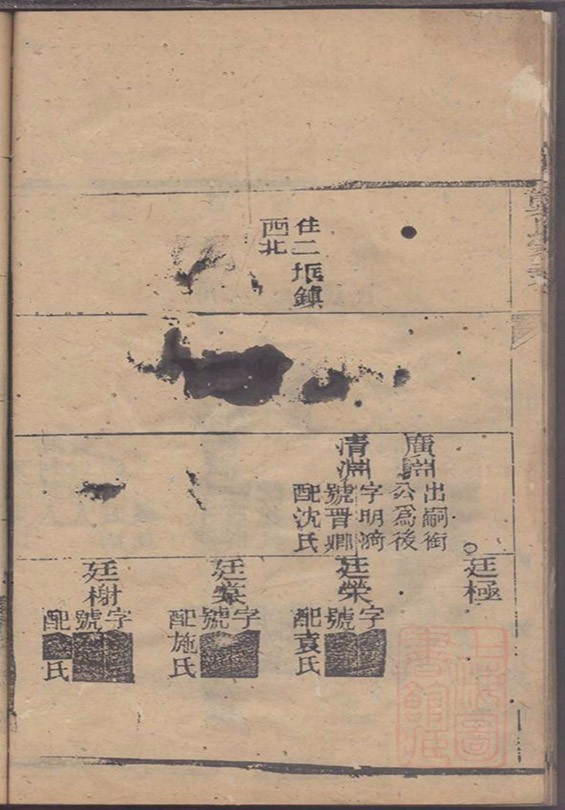 住二垢鎮
西北
廣淵
出嗣銜
公為後
清淵
字明漪
號晋卿
配沈氏
廷極
廷榮
字
號
配袁氏
廷棻
字
號
配施氏
廷榭
字
號
配
氏
上海圖
書館藏